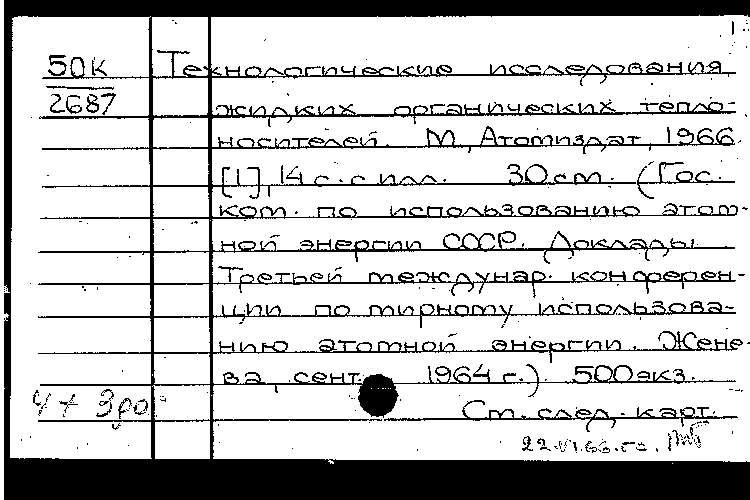 1
50К Технологические исследования
2687 жидких органических тепло-
носителей. М., Атомиздат, 1966.
[1], 14 с. с илл. 30 см. (Гос.
ком. по использованию атом-
ной энергии СССР. Доклады
Третьей междунар. конферен-
ции по мирному использова-
нию атомной энергии. Жене-
ва, сент. 1964 г.). 500 экз.
Ст. след. карт.
22.VI.66.